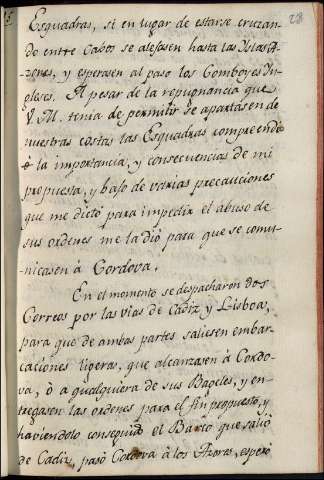 28
Esquadras, si en lugar de estarse cruzan-
do entre Cabos se alejasen hasta las Islas A-
zores, y esperasen al paso los Comboyes In-
gleses. A pesar de la repugnancia que
V. M. tenia de permitir se apartásen de
nuestras costas las Esquadras comprendió
la importancia, y consecuencias de mi
propuesta, y bajo de varias precauciones
que me dictó para impedir el abuso de
sus ordenes me la dió para que se comu-
nicasen à Cordova.
En el momento se despacharon dos
Correos por las vias de Cadiz y Lisboa,
para que de ambas partes saliesen embar-
caciones ligeras, que alcanzasen à Cordo-
va, ò a qualquiera de sus Bageles, y en-
tregasen las ordenes para el fin propuesto, y
haviendolo conseguido el Barco que salió
de Cadiz, pasó Cordova à los Azores, esperó